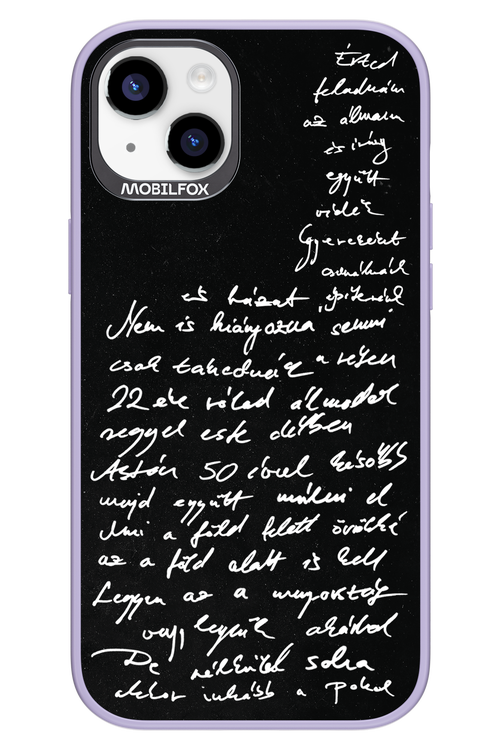 MOBILFOX
Érted
feladnám
az álmaim
és így
együtt
vidék
Gyerekeket
csinálnánk
és házat építenénk
Nem is hiányozna semmi
csak takednék a részen
22 éve rólad álmodok
reggel este délben
Aztán 50 évvel később
majd együtt múlni el
Ami a föld felett örökké
az a föld alatt is kell
Legyen az a mennyország
vagy legyünk akárhol
De nélküled soha
akkor inkább a pokol